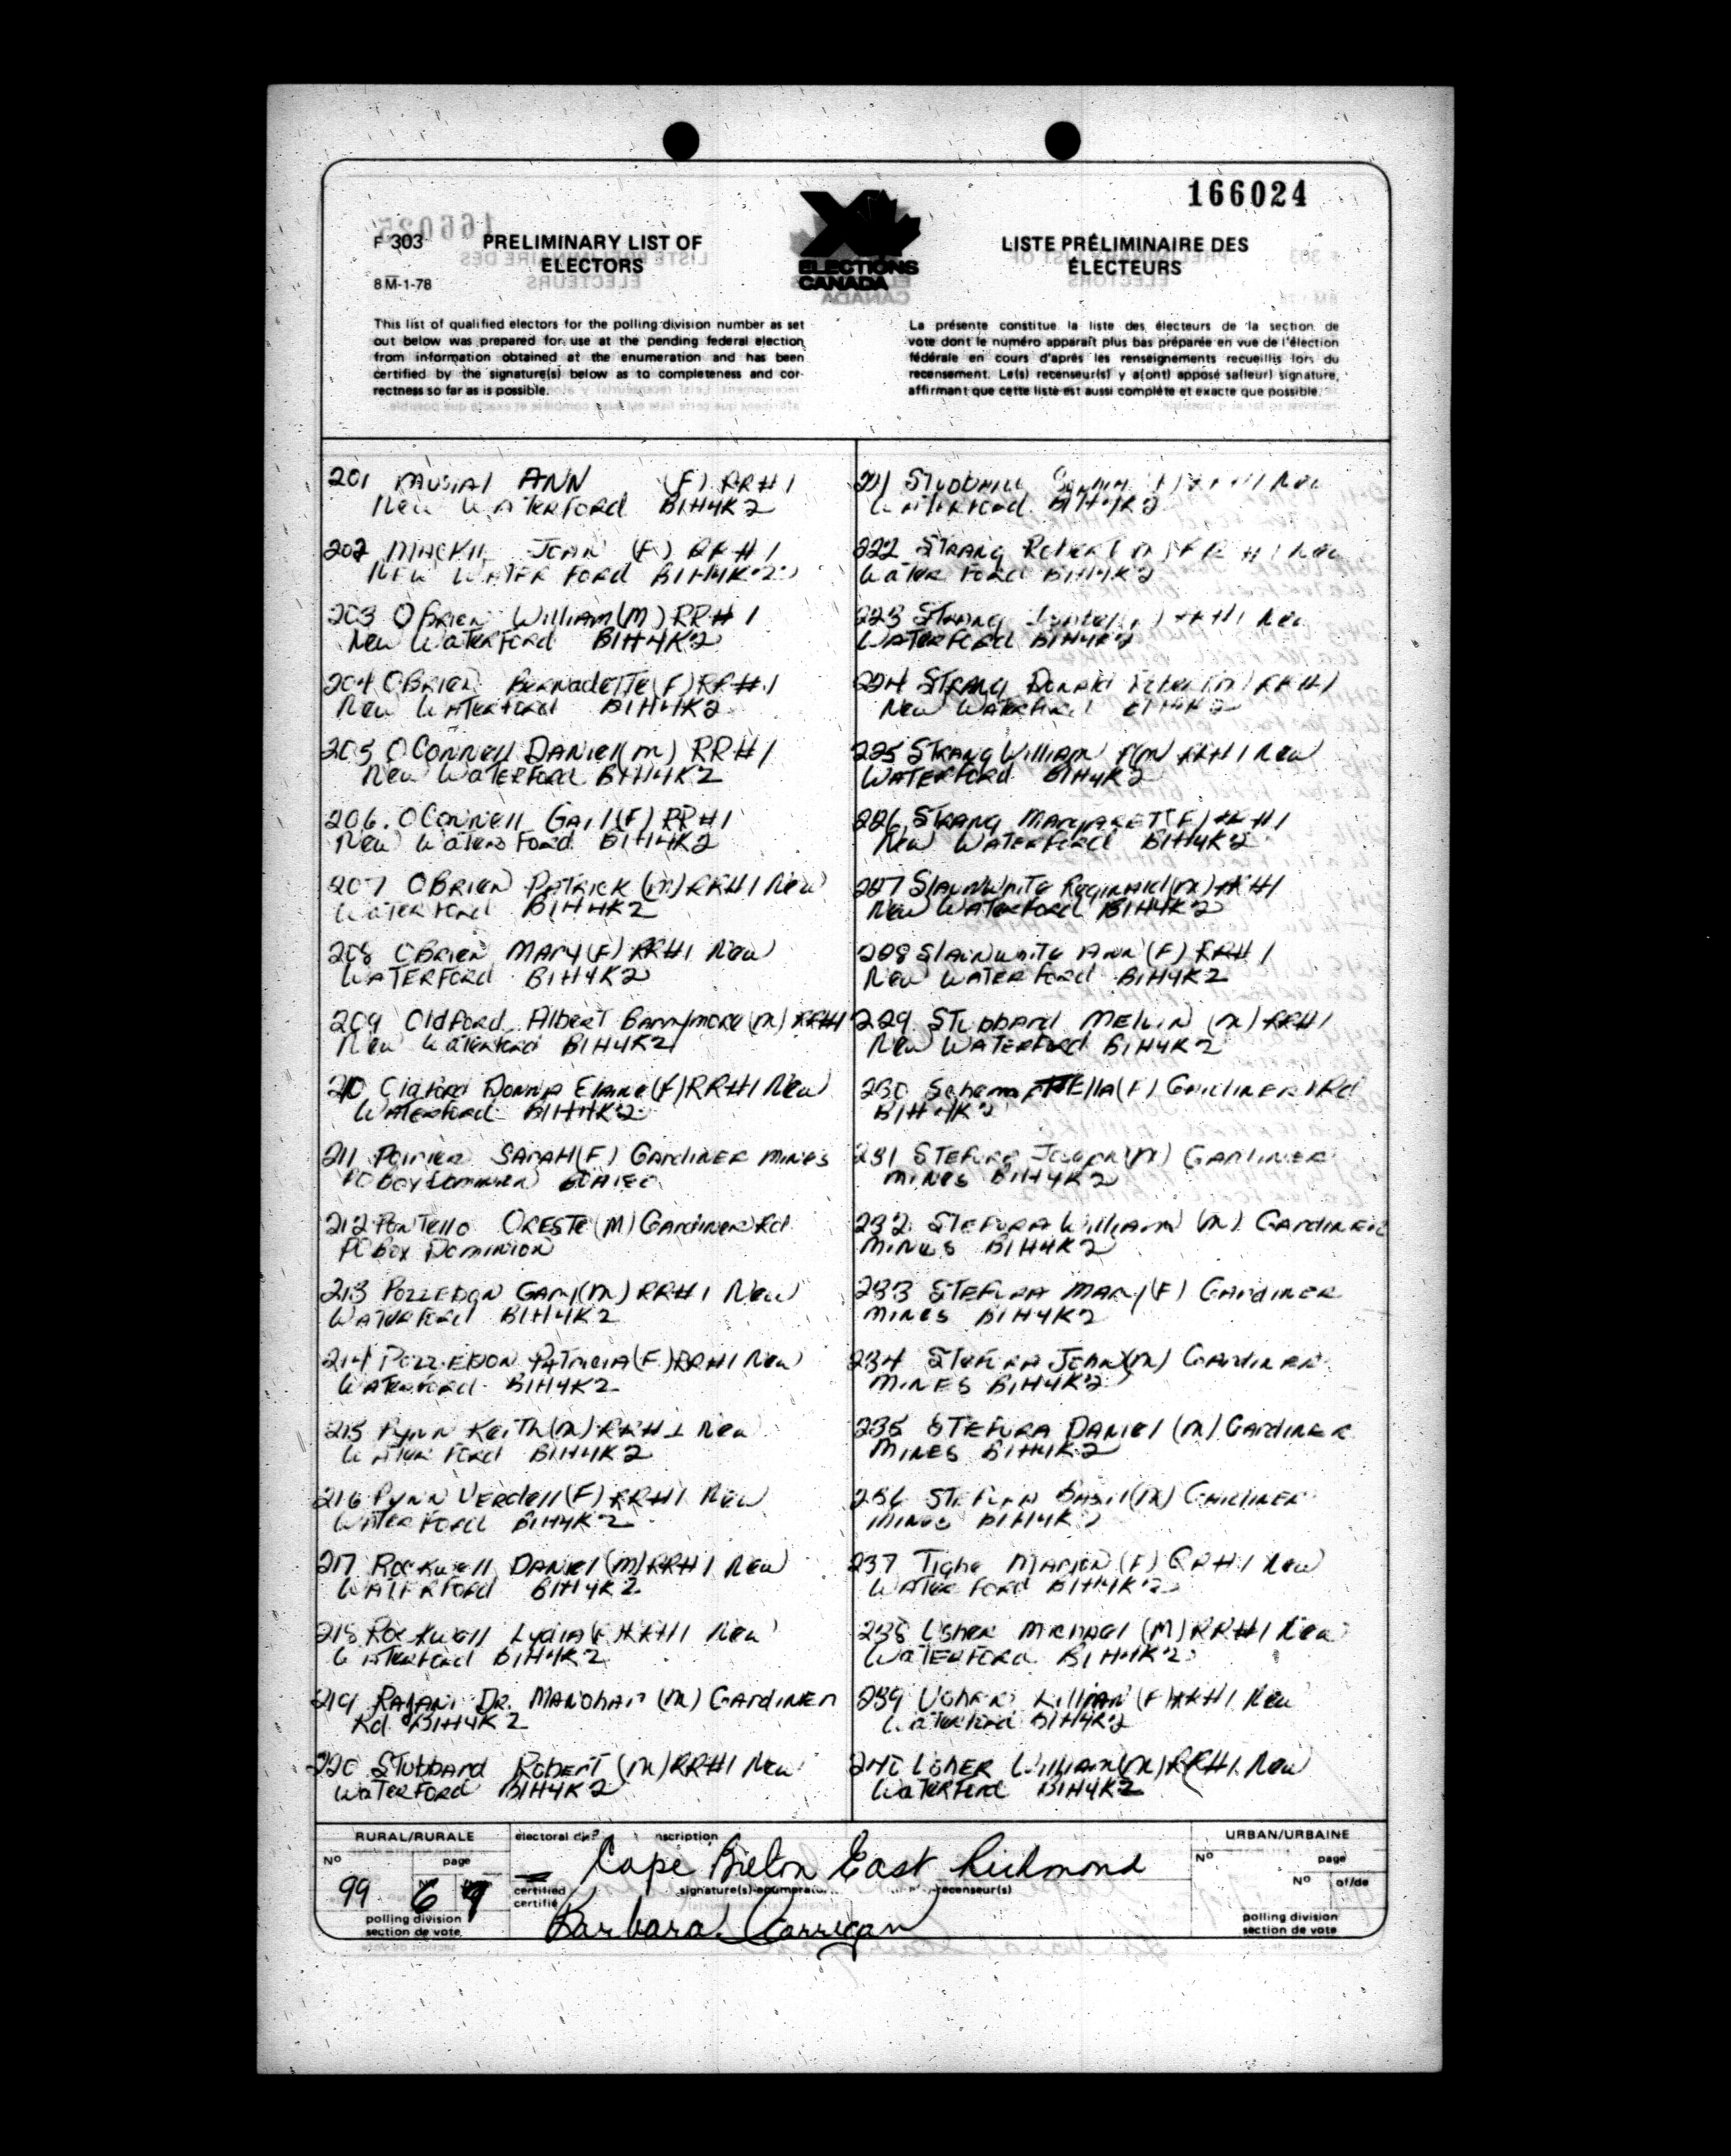 166024
F 303
PRELIMINARY LIST OF
ELECTORS
8 M-1-78
ELECTIONS
CANADA
LISTE PRÉLIMINAIRE DES
ÉLECTEURS
This list of qualified electors for the polling division number as set
out below was prepared for use at the pending federal election
from information obtained at the enumeration and has been
certified by the signature(s) below as to completeness and cor-
rectness so far as is possible.
La présente constitue la liste des électeurs de la section de
vote dont le numéro apparaît plus bas préparée en vue de l'élection
fédérale en cours d'après les renseignements recueillis lors du
recensement. Le(s) recenseur(s) y a(ont) apposé sa(leur) signature,
affirmant que cette liste est aussi complète et exacte que possible.
201 Musial ANN (F) RR#1
New Waterford B1H4K2
202 Joan (F) RR#1
New Water Ford B1H4K2
203 OBrien William (M) RR#1
New Waterford B1H4K2
204 OBrien Bernadette (F) RR#1
New Waterford B1H4K2
205 OConnell Daniel (m) RR#1
New Waterford B1H4K2
206. OConnell Gail (F) RR#1
New Waters Ford B1H4K2
207 OBrien Patrick (m) RR#1 New
Waterford B1H4K2
208 OBrien Mary (F) RR#1 New
Waterford B1H4K2
209 Oldford Albert Barrymore (m) RR#1
New Waterford B1H4K2
210 Oldford Donna Elaine (F) RR#1 New
Waterford B1H4K2
211 Poirier Sarah (F) Gardiner Mines
PO Box Dominion
212 Pontello Oreste (M) Gardiner Rd
PO Box Dominion
213 Pozzebon Gary (m) RR#1 New
Waterford B1H4K2
214 Pozzebon Patricia (F) RR#1 New
Waterford B1H4K2
215 Pynn Keith (m) RR#1 New
Water Ford B1H4K2
216 Pynn Verdell (F) RR#1 New
Water Ford B1H4K2
217 Rockwell Daniel (m) RR#1 New
Waterford B1H4K2
218 Rockwell Lydia (F) RR#1 New
Waterford B1H4K2
219 Rajani Dr. Manohar (m) Gardiner
Rd B1H4K2
220 Stubbard Robert (m) RR#1 New
Waterford B1H4K2
221 New
Waterford B1H4K2
222 Strang Robert (m) RR#1 New
Water Ford B1H4K2
223 Strang RR#1 New
Waterford B1H4K2
224 Strang Donald (m) RR#1
New Waterford B1H4K2
225 Strang William (m) RR#1 New
Waterford B1H4K2
226 Strang Margaret (F) RR#1
New Waterford B1H4K2
227 Slaunwhite Reginald (m) RR#1
New Waterford B1H4K2
228 Slaunwhite Ann (F) RR#1
New Water Ford B1H4K2
229 Stubbard Melvin (m) RR#1
New Waterford B1H4K2
230 Ella (F) Gardiner Rd
B1H4K2
231 Stefura Joseph (m) Gardiner
Mines B1H4K2
232 Stefura William (m) Gardiner
Mines B1H4K2
233 Stefura Mary (F) Gardiner
Mines B1H4K2
234 Stefura John (m) Gardiner
Mines B1H4K2
235 Stefura Daniel (m) Gardiner
Mines B1H4K2
236 Stefura Basil (m) Gardiner
Mines B1H4K2
237 Tighe Marion (F) RR#1 New
Water Ford B1H4K2
238 Usher Michael (M) RR#1 New
Waterford B1H4K2
239 Usher Lillian (F) RR#1 New
Waterford B1H4K2
240 Usher William (m) RR#1 New
Waterford B1H4K2
RURAL/RURALE
No page
99 6 9
polling division
section de vote
electoral
Cape Breton East Richmond
certified
certifié
recenseur(s)
Barbara Corrigan
URBAN/URBAINE
No page
No of/de
polling division
section de vote